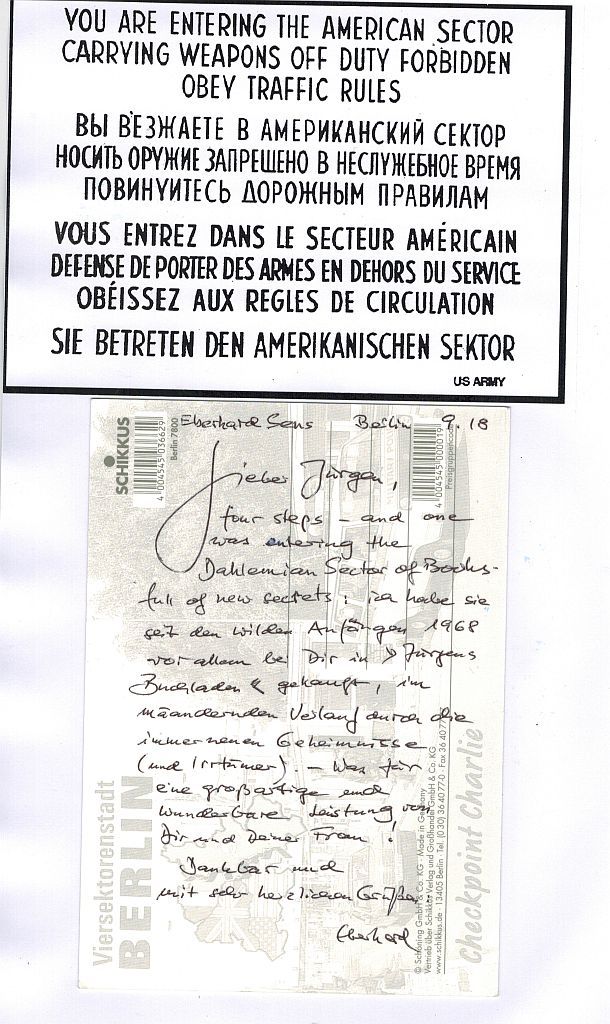 YOU ARE ENTERING THE AMERICAN SECTOR
CARRYING WEAPONS OFF DUTY FORBIDDEN
OBEY TRAFFIC RULES
ВЫ ВЪЕЗЖАЕТЕ В АМЕРИКАНСКИЙ СЕКТОР
НОСИТЬ ОРУЖИЕ ЗАПРЕЩЕНО В НЕСЛУЖЕБНОЕ ВРЕМЯ
ПОВИНУИТЕСЬ ДОРОЖНЫМ ПРАВИЛАМ
VOUS ENTREZ DANS LE SECTEUR AMÉRICAIN
DEFENSE DE PORTER DES ARMES EN DEHORS DU SERVICE
OBÉISSEZ AUX REGLES DE CIRCULATION
SIE BETRETEN DEN AMERIKANISCHEN SEKTOR
US ARMY
SCHIKKUS
4 004545 036629
Berlin 7800
4 004545 000019
Preisgruppencode
Eberhard Sens Berlin 9.18
Lieber Jürgen,
four steps – and one
was entering the
Dahlemian Sector of Books-
full of new secrets; ich habe sie
seit den wilden Anfängen 1968
vor allem bei Dir in »Jürgens
Buchladen« gekauft, im
mäandernden Verlauf durch die
immerneuen Geheimnisse
(und Irrtümer). – Was für
eine großartige und
wunderbare Leistung von
Dir und Deiner Frau!
Dankbar und
mit sehr herzlichen Grüßen
Eberhard
Viersektorenstadt
BERLIN
© Schöning GmbH & Co. KG · Made in Germany
Vertrieb über Schikkus Verlag und Großhandel GmbH & Co. KG
www.schikkus.de · 13405 Berlin · Tel. (0 30) 36 40 77-0 · Fax 36 40 77
Checkpoint Charlie